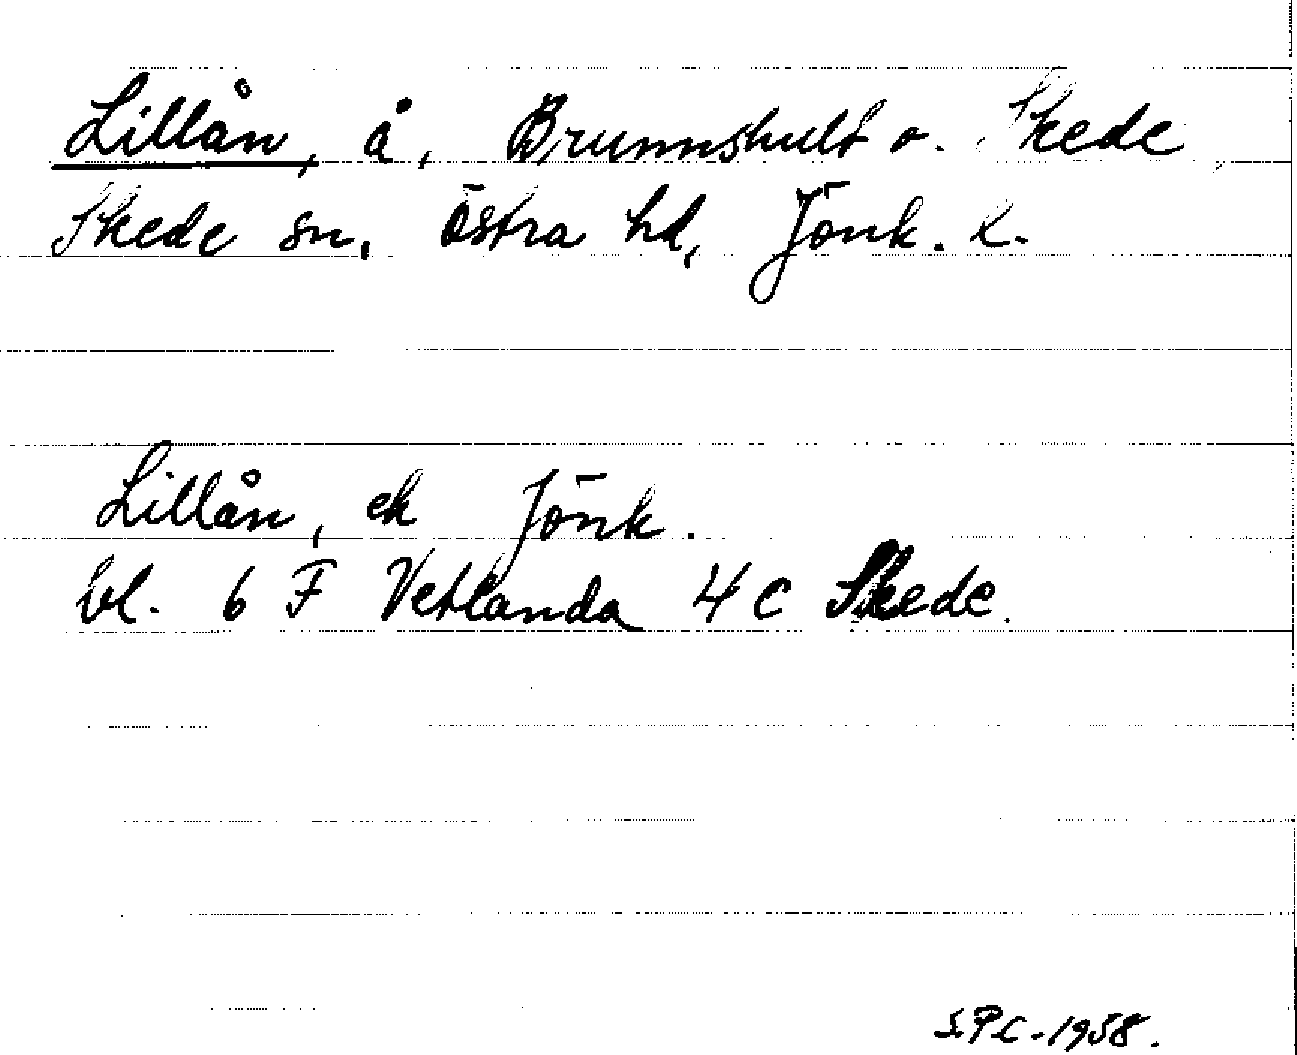 Lillån, å, Brunnshult o. Skede
Skede sn, Östra hd, Jönk. l.
Lillån, ek Jönk.
bl. 6 F Vetlanda 4 c Skede.
S.P.C. - 1958.